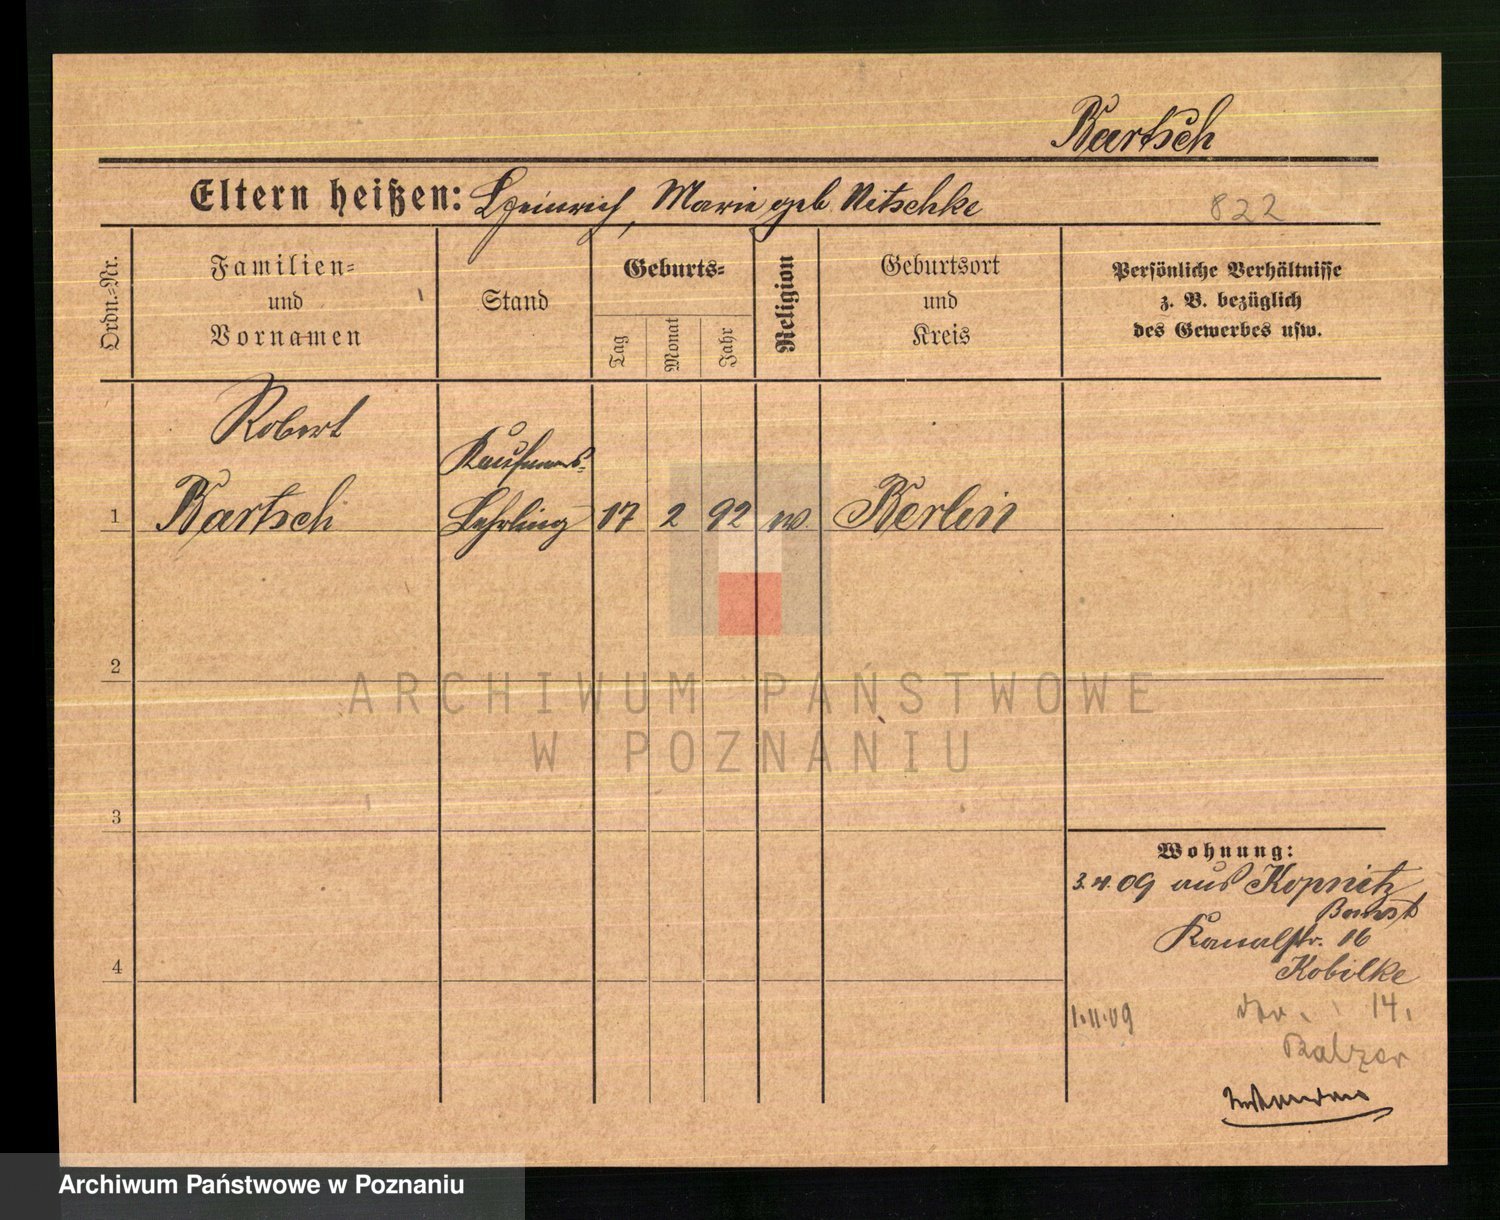 Bartsch
Eltern heißen: Heinrich, Marie geb Nitschke
822
Ordn.-Nr.
Familien=
und
Vornamen
Stand
Geburts=
Tag
Monat
Jahr
Religion
Geburtsort
und
Kreis
Persönliche Verhältnisse
z. B. bezüglich
des Gewerbes usw.
Robert
Kaufmanns-
1 Bartsch Lehrling 17 2 92 Berlin
2
3
4
Wohnung:
3.4.09 aus Kopnitz
Bomst
Kanalstr. 16
Kobilke
1.11.09 14.
Balzer
ARCHIWUM PAŃSTWOWE
W POZNANIU
Archiwum Państwowe w Poznaniu